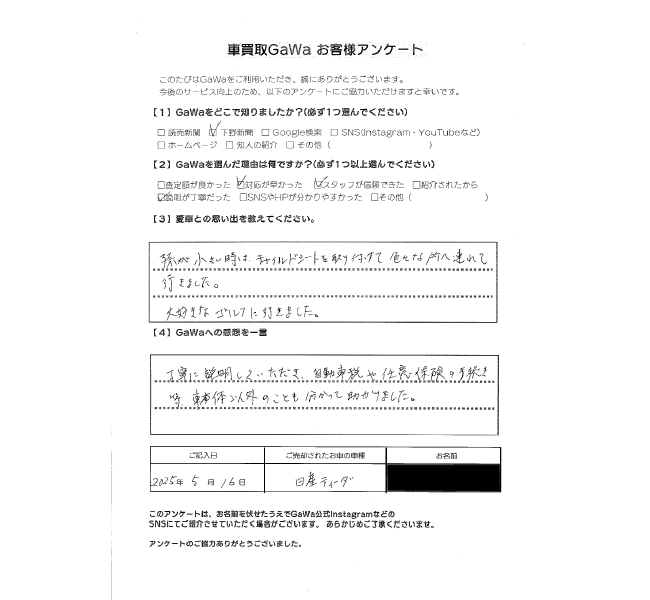 車買取GaWa お客様アンケート
このたびはGaWaをご利用いただき、誠にありがとうございます。
今後のサービス向上のため、以下のアンケートにご協力いただけますと幸いです。
【1】GaWaをどこで知りましたか?(必ず1つ選んでください)
□ 読売新聞 ☑ 下野新聞 □ Google検索 □ SNS(Instagram・YouTubeなど)
□ ホームページ □ 知人の紹介 □ その他 ( )
【2】GaWaを選んだ理由は何ですか?(必ず1つ以上選んでください)
□査定額が良かった ☑対応が早かった ☑スタッフが信頼できた □紹介されたから
☑説明が丁寧だった □SNSやHPが分かりやすかった □その他 ( )
【3】愛車との思い出を教えてください。
孫が小さい時は、チャイルドシートを取り付けて色々な所へ連れて
行きました。
大好きなゴルフに行きました。
【4】GaWaへの感想を一言
丁寧に説明していただき、自動車税や任意保険の手続き
等、車本体以外のことも分かって助かりました。
ご記入日 ご売却されたお車の車種 お名前
2025年 5月 16日 日産ティーダ
このアンケートは、お名前を伏せたうえでGaWa公式Instagramなどの
SNSにてご紹介させていただく場合がございます。あらかじめご了承くださいませ。
アンケートのご協力ありがとうございました。